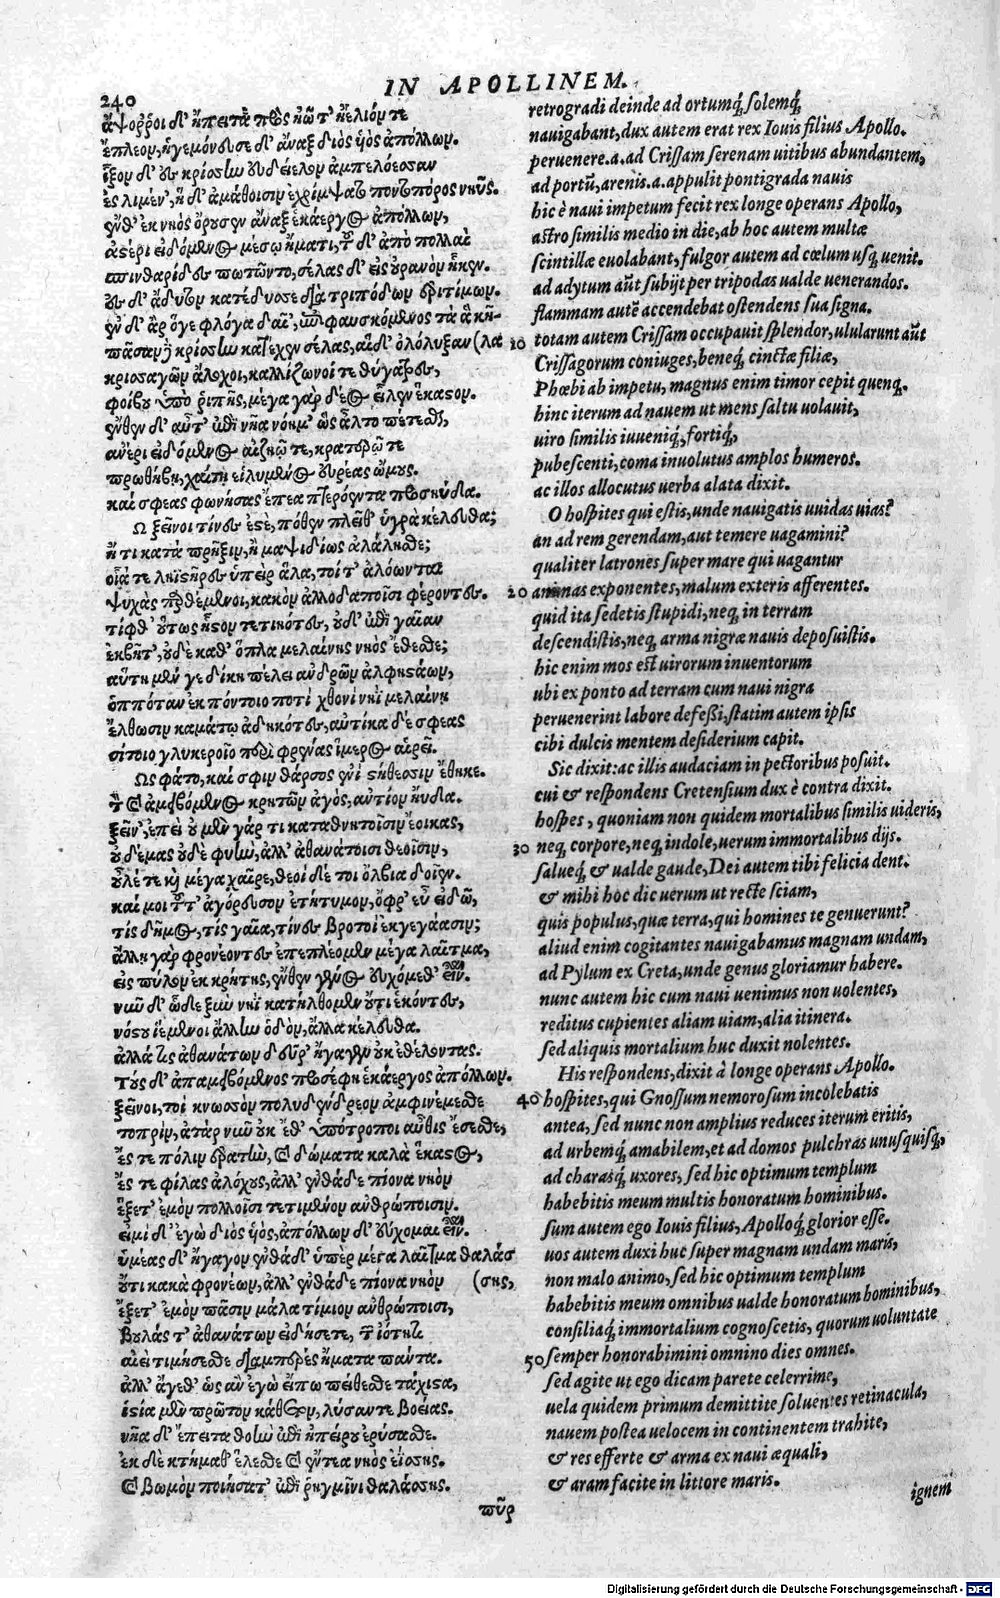 240
IN APOLLINEM.
ἄψοῤῥοι δ' ἤπειτα πρὸς ἠῶ τ' ἠέλιόν τε
ἔπλεον, ἡγεμόνευσε δ' ἄναξ διὸς ἡὸς ἀπόλλων.
ἷξον δ' ἐς κρίσσην εὐδείελον ἀμπελόεσσαν
ἐς λιμέν', ἡ δ' ἀμάθοισιν ἐχρίμψατο ποντοπόρος νηῦς.
ἔνθ' ἐκ νηὸς ὄρουσεν ἄναξ ἑκάεργος ἀπόλλων,
ἀστέρι εἰδόμενος μέσῳ ἤματι, τοῦ δ' ἀπὸ πολλαὶ
σπινθαρίδες πωτῶντο, σέλας δ' εἰς οὐρανὸν ἧκεν.
ἐς δ' ἄδυτον κατέδυσε διὰ τριπόδων ἐριτίμων.
ἐν δ' ἄρ ὅγε φλόγα δαῖ', πιφαυσκόμενος τὰ ἃ κῆ-
πᾶσαν δὲ κρίσσην κάτεχεν σέλας, αἱ δ' ὀλόλυξαν (λα
κρισσαγῶν ἄλοχοι, καλλίζωνοί τε θύγατρες,
φοίβου ὑπὸ ῥιπῆς, μέγα γὰρ δέος εἷλεν ἕκαστον.
ἔνθεν δ' αὖτ' ἐπὶ νῆα νόημ' ὣς ἆλτο πέτεσθαι,
ἀνέρι εἰδόμενος αἰζηῷ τε, κρατερῷ τε
πρωθήβῃ, χαίτῃ εἰλυμένος εὐρέας ὤμους.
καί σφεας φωνήσας ἔπεα πτερόεντα προσηύδα.
Ω ξεῖνοι τίνες ἐστέ, πόθεν πλεῖθ' ὑγρὰ κέλευθα;
ἤ τι κατὰ πρῆξιν, ἢ μαψιδίως ἀλάλησθε;
οἷά τε ληϊστῆρες ὑπεὶρ ἅλα, τοί τ' ἀλόωνται
ψυχὰς παρθέμενοι, κακὸν ἀλλοδαποῖσι φέροντες.
τίφθ' οὕτως ἧστον τετιηότες, οὐδ' ἐπὶ γαῖαν
ἐκβῆτ', οὐδὲ καθ' ὅπλα μελαίνης νηὸς ἔθεσθε;
αὕτη μέν γε δίκη πέλει ἀνδρῶν ἀλφηστάων,
ὁππόταν ἐκ πόντοιο ποτὶ χθονὶ νηῒ μελαίνῃ
ἔλθωσιν καμάτῳ ἀδηκότες, αὐτίκα δέ σφεας
σίτοιο γλυκεροῖο περὶ φρένας ἵμερος αἱρεῖ.
Ως φάτο, καί σφιν θάρσος ἐνὶ στήθεσσιν ἔθηκε.
τὸν καὶ ἀμειβόμενος κρητῶν ἀγὸς, ἀντίον ηὔδα.
ξεῖν', ἐπεὶ οὐ μὲν γάρ τι καταθνητοῖσιν ἔοικας,
οὐ δέμας οὐδὲ φυὴν, ἀλλ' ἀθανάτοισι θεοῖσιν,
οὖλέ τε καὶ μέγα χαῖρε, θεοὶ δέ τοι ὄλβια δοῖεν.
καί μοι τοῦτ' ἀγόρευσον ἐτήτυμον, ὄφρ' εὖ εἰδῶ,
τίς δῆμος, τίς γαῖα, τίνες βροτοὶ ἐκγεγάασιν;
ἄλλῃ γὰρ φρονέοντες ἐπεπλέομεν μέγα λαῖτμα,
εἰς πύλον ἐκ κρήτης, ἔνθεν γένος εὐχόμεθ' εἶναι.
νῦν δ' ὧδε ξὺν νηῒ κατήλθομεν οὔτι ἑκόντες,
νόστου ἱέμενοι ἄλλην ὁδὸν, ἄλλα κέλευθα.
ἀλλά τις ἀθανάτων δεῦρ' ἤγαγεν οὐκ ἐθέλοντας.
Τοὺς δ' ἀπαμειβόμενος προσέφη ἑκάεργος ἀπόλλων.
ξεῖνοι, τοὶ κνωσσὸν πολυδένδρεον ἀμφινέμεσθε
τοπρὶν, ἀτὰρ νῦν οὐκ ἔθ' ὑπότροποι αὖθις ἔσεσθε,
ἔς τε πόλιν ἐρατὴν, καὶ δώματα καλὰ ἕκαστος,
ἔς τε φίλας ἀλόχους, ἀλλ' ἐνθάδε πίονα νηὸν
ἕξετ' ἐμὸν πολλοῖσι τετιμένον ἀνθρώποισιν.
εἰμὶ δ' ἐγὼ διὸς ἡὸς, ἀπόλλων δ' εὔχομαι εἶναι.
ὑμέας δ' ἤγαγον ἐνθάδ' ὑπὲρ μέγα λαῖτμα θαλάσ
οὔτι κακὰ φρονέων, ἀλλ' ἐνθάδε πίονα νηὸν (σης,
ἕξετ' ἐμὸν πᾶσιν μάλα τίμιον ἀνθρώποισι,
βουλάς τ' ἀθανάτων εἰδήσετε, τῶν ἰότητι
αἰεὶ τιμήσεσθε διαμπερὲς ἤματα πάντα.
ἀλλ' ἄγεθ' ὡς ἂν ἐγὼ εἴπω πείθεσθε τάχιστα,
ἱστία μὲν πρῶτον κάθετον, λύσαντε βοείας.
νῆα δ' ἔπειτα θοὴν ἐπὶ ἠπείρου ἐρύσασθε.
ἐκ δὲ κτήμαθ' ἕλεσθε καὶ ἔντεα νηὸς ἐΐσης.
καὶ βωμὸν ποιήσατ' ἐπὶ ῥηγμῖνι θαλάσσης.
πῦρ
retrogradi deinde ad ortumq́; solemq́;
nauigabant, dux autem erat rex Iouis filius Apollo.
peruenere.a.ad Crissam serenam uitibus abundantem,
ad portũ, arenis.a.appulit pontigrada nauis
hic è naui impetum fecit rex longe operans Apollo,
astro similis medio in die, ab hoc autem multæ
scintillæ euolabant, fulgor autem ad cœlum usq; uenit.
ad adytum aũt subijt per tripodas ualde uenerandos.
flammam autẽ accendebat ostendens sua signa.
10 totam autem Crissam occupauit splendor, ulularunt aũt
Crissagorum coniuges, beneq́; cinctæ filiæ,
Phœbi ab impetu, magnus enim timor cepit quenq;.
hinc iterum ad nauem ut mens saltu uolauit,
uiro similis iuueniq́;, fortiq́;,
pubescenti, coma inuolutus amplos humeros.
ac illos allocutus uerba alata dixit.
O hospites qui estis, unde nauigatis uuidas uias?
an ad rem gerendam, aut temere uagamini?
qualiter latrones super mare qui uagantur
20 animas exponentes, malum exteris afferentes.
quid ita sedetis stupidi, neq; in terram
descendistis, neq; arma nigræ nauis deposuistis.
hic enim mos est uirorum inuentorum
ubi ex ponto ad terram cum naui nigra
peruenerint labore defeßi, statim autem ipsis
cibi dulcis mentem desiderium capit.
Sic dixit: ac illis audaciam in pectoribus posuit.
cui & respondens Cretensium dux è contra dixit.
hospes, quoniam non quidem mortalibus similis uideris,
30 neq; corpore, neq; indole, uerum immortalibus dijs.
salueq́; & ualde gaude, Dei autem tibi felicia dent.
& mihi hoc dic uerum ut recte sciam,
quis populus, quæ terra, qui homines te genuerunt?
aliud enim cogitantes nauigabamus magnam undam,
ad Pylum ex Creta, unde genus gloriamur habere.
nunc autem hic cum naui uenimus non uolentes,
reditus cupientes aliam uiam, alia itinera.
sed aliquis mortalium huc duxit nolentes.
His respondens, dixit à longe operans Apollo.
40 hospites, qui Gnossum nemorosum incolebatis
antea, sed nunc non amplius reduces iterum eritis,
ad urbemq́; amabilem, et ad domos pulchras unusquisq;,
ad charasq́; uxores, sed hic optimum templum
habebitis meum multis honoratum hominibus.
sum autem ego Iouis filius, Apolloq́; glorior esse.
uos autem duxi huc super magnam undam maris,
non malo animo, sed hic optimum templum
habebitis meum omnibus ualde honoratum hominibus,
consiliaq́; immortalium cognoscetis, quorum uoluntate
50 semper honorabimini omnino dies omnes.
sed agite ut ego dicam parete celerrime,
uela quidem primum demittite soluentes retinacula,
nauem postea uelocem in continentem trahite,
& res efferte & arma ex naui æquali,
& aram facite in littore maris.
ignem
Digitalisierung gefördert durch die Deutsche Forschungsgemeinschaft - DFG